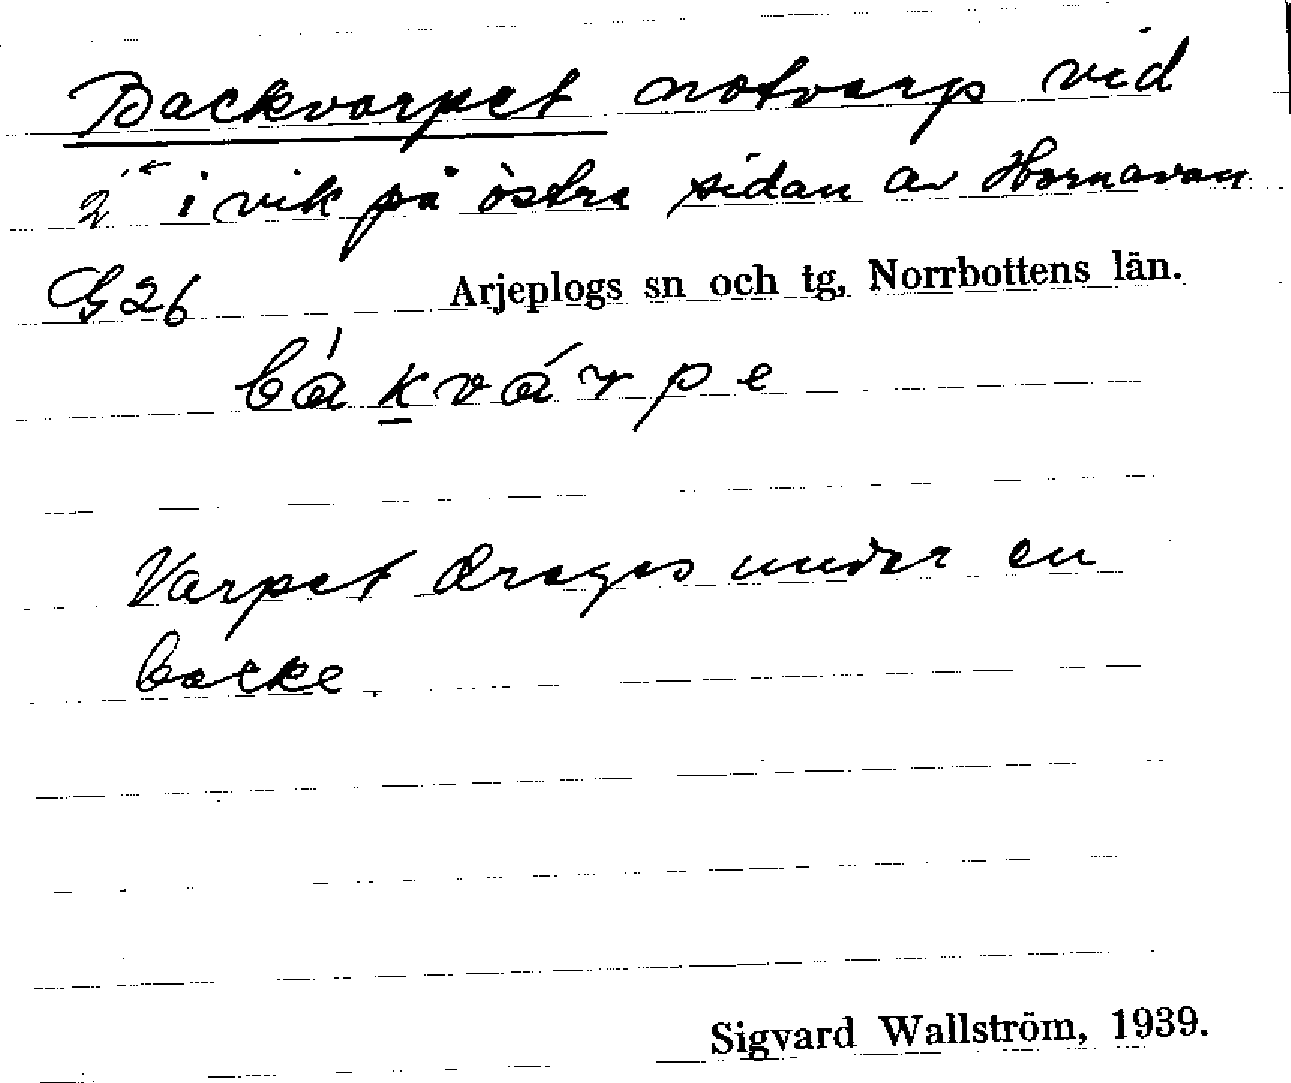 Backvarpet notvarp vid
i vik på östra sidan av Hornavan
G26 Arjeplogs sn och tg, Norrbottens län.
bákvárpe
Varpet drages under en
backe.
Sigvard Wallström, 1939.